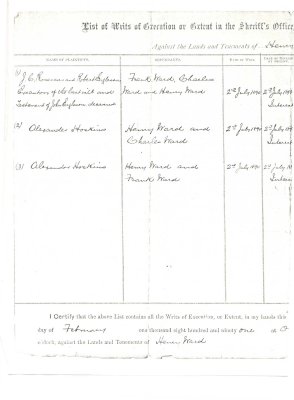 List of Writs of Execution or Extent in the Sheriff's Office
Against the Lands and Tenements of Henry
NAME OF PLAINTIFFS. DEFENDANTS. DATE OF WRIT.
(1) J. C. and Robert
Executors of the last will and
Testament of John deceased
Frank Ward, Charles
Ward and Henry Ward
2nd July 1890 2nd July 189
Interest
(2) Alexander Hoskins
Henry Ward and
Charles Ward
2nd July 1890 2nd July 189
Interest
(3) Alexander Hoskins
Henry Ward and
Frank Ward
2nd July 1890 2nd July 18
Interest
I Certify that the above List contains all the Writs of Execution, or Extent, in my hands this
day of February one thousand eight hundred and ninety one at
o'clock, against the Lands and Tenements of Henry Ward